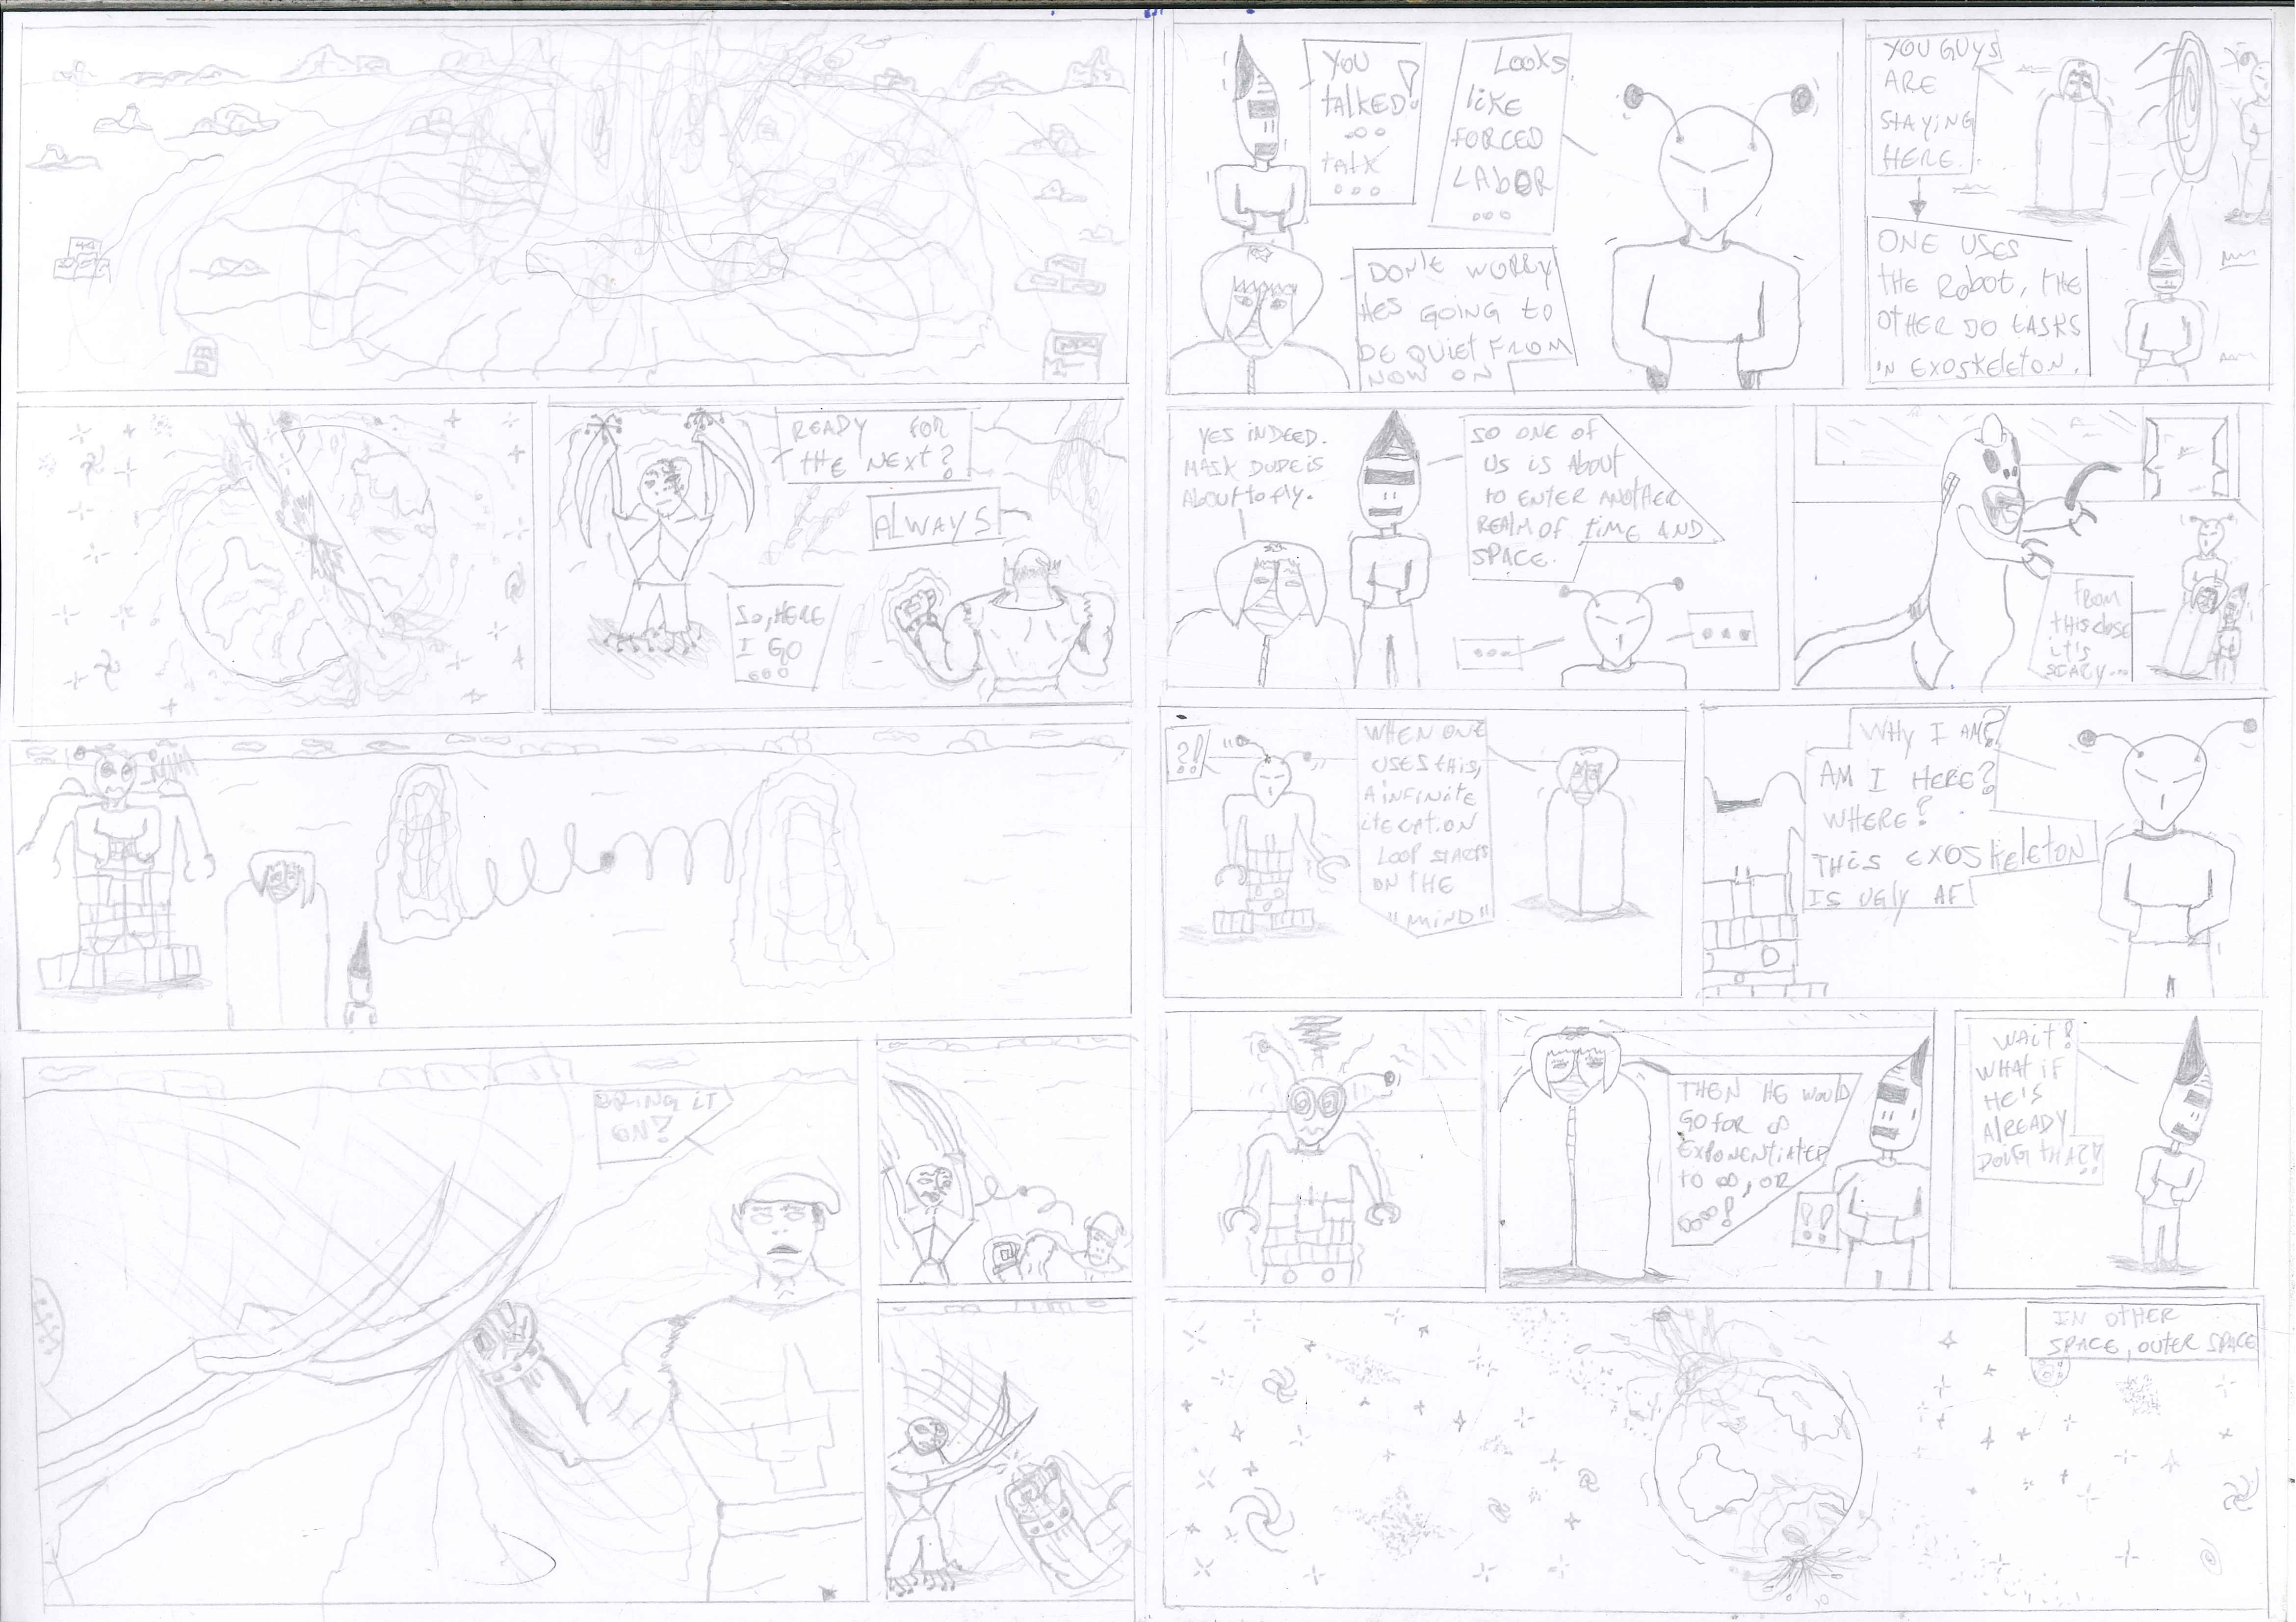 READY FOR
tHE NEXT?
ALWAYS
SO, HERE
I GO
...
BRING IT
ON!
YOU
tALKED!
...
tALK
...
LOOKS
liKE
FORCED
LAbOR
...
DON't WORRY
HES GOING tO
BE QUIET FROM
NOW ON
YOU GUYS
ARE
StAYiNG
HERE.
ONE USES
tHE RObOt, tHE
OtHER DO tASKS
iN EXOSKELETON.
YES iNDEED.
MASK DUDE iS
AbOUT to fly.
SO ONE OF
US iS AbOUt
tO ENtER ANOtHER
REALM OF tiME AND
SPACE.
...
...
FROM
tHiS close
it's
SCARY...
?!
WHEN ONE
USES tHiS,
A iNFiNitE
itERAtiON
LOOP StARtS
ON tHE
"MiND"
WHy I AM?
AM I HERE?
WHERE?
tHiS EXOSKEleton
IS UGly AF
tHEN HE WOUlD
GO FOR ∞
EXPONENtiAtED
tO ∞, OR
000!
!!
WAit!
WHAt iF
HE iS
AlREADY
DOiNG tHAt?!
IN OtHER
SPACE, OUtER SPACE